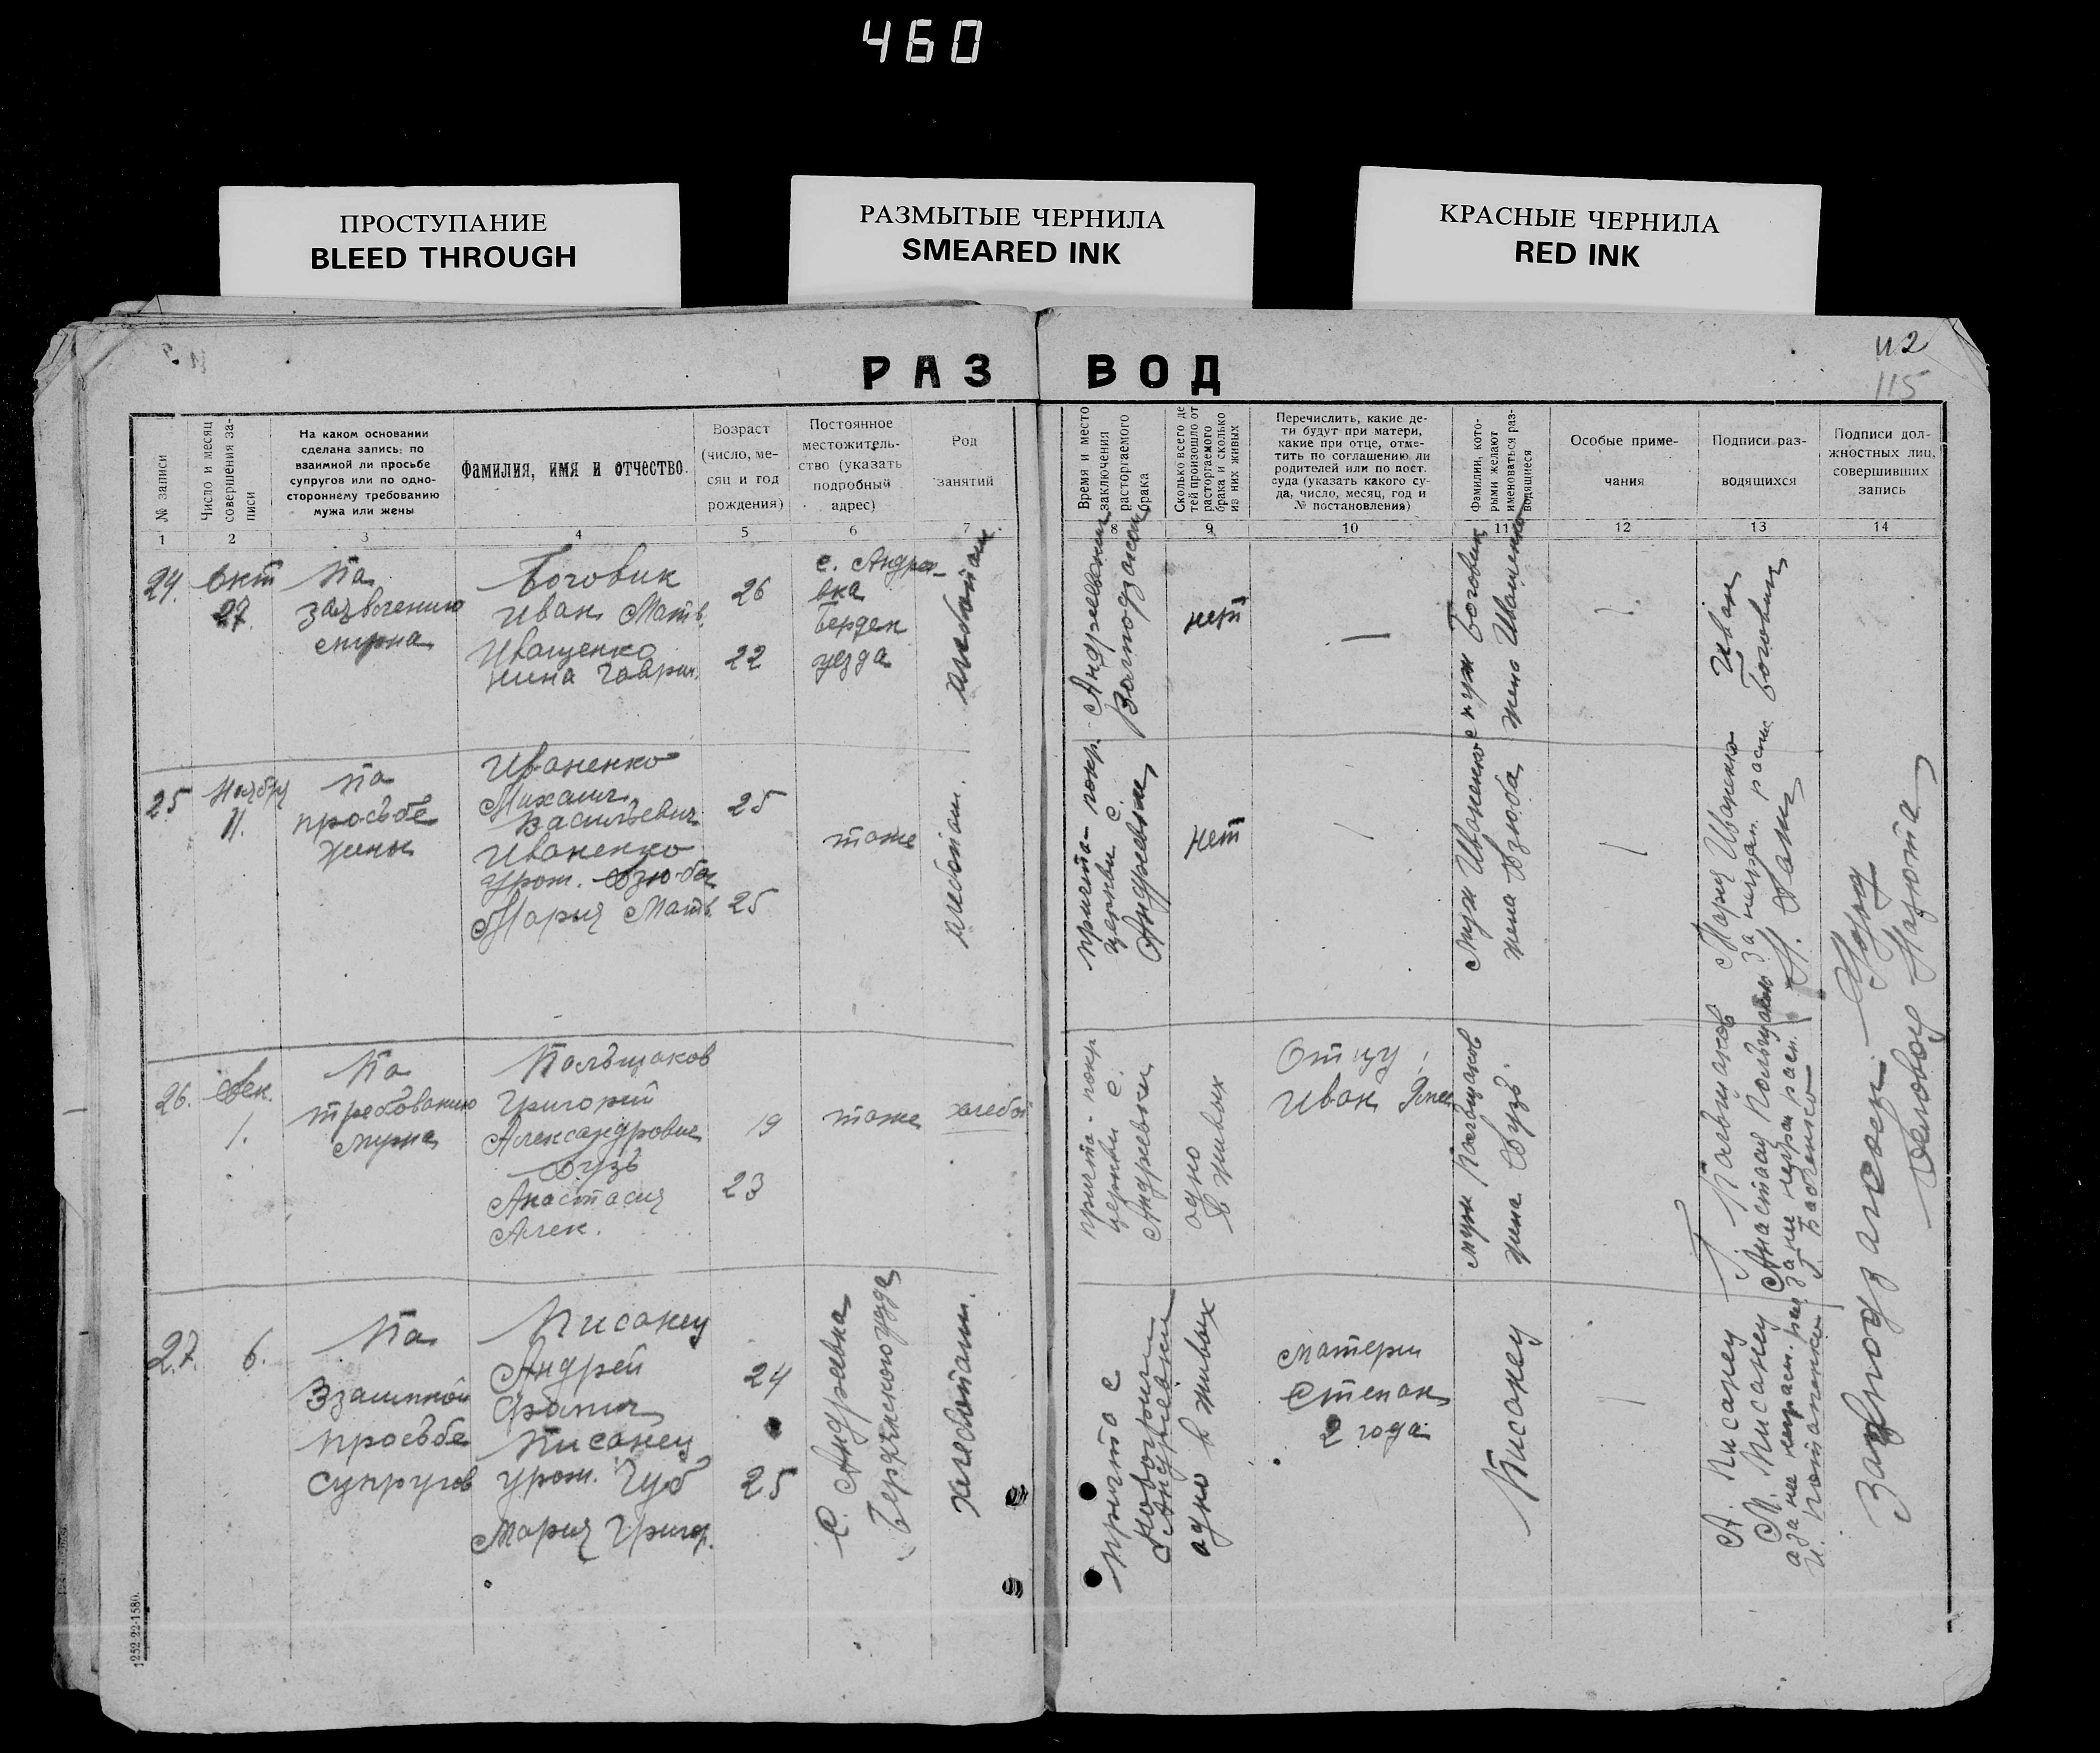 460
ПРОСТУПАНИЕ
BLEED THROUGH
РАЗМЫТЫЕ ЧЕРНИЛА
SMEARED INK
КРАСНЫЕ ЧЕРНИЛА
RED INK
112
115
РАЗВОД
№ записи
Число и месяц
совершения за-
писи
На каком основании
сделана запись: по
взаимной ли просьбе
супругов или по одно-
стороннему требованию
мужа или жены
Фамилия, имя и отчество.
Возраст
(число, ме-
сяц и год
рождения)
Постоянное
местожитель-
ство (указать
подробный
адрес)
Род
занятий
Время и место
заключения
расторгаемого
брака
Сколько всего де
тей произошло от
расторгаемого
брака и сколько
из них живых
Перечислить, какие де-
ти будут при матери,
какие при отце, отме-
тить по соглашению ли
родителей или по пост.
суда (указать какого су-
да, число, месяц, год и
№ постановления)
Фамилии, кото-
рыми желают
именоваться раз-
водящиеся
Особые приме-
чания
Подписи раз-
водящихся
Подписи дол-
жностных лиц,
совершивших
запись
1 2 3 4 5 6 7 8 9 10 11 12 13 14
24.
Окт
27.
По
Боговик
Иван Матв.
Иващенко
Нина Гаври.
26
22
с. Андре-
вка
Бердян
уезда
хлебопаш
нет
—
муж Боговик
жена Иващенко
Иван
Боговик
25
Ноября
11.
По
просьбе
жены
Иваненко
Михаил
Васильевич
Иваненко
урож. Дзюба
Мария Матв.
25
25
тоже
хлебопаш.
причта покр.
церкви с.
Андревки
нет
Муж Иваненко
жена Дзюба
Мария Иваненко
26.
Дек.
1.
По
требованию
мужа
Польщаков
Григорий
Александрович
Дузь
Анастасия
Алек.
19
23
тоже
хлебоп
причта покр
церкви с.
Андревки
одно
в живых
Отцу
Иван
муж Польщаков
жена Дузь.
Г. Польщаков
Анастасия Польщакова
27.
6.
По
Взаимной
просьбе
супругов
Писанец
Андрей
Писанец
урож. Губ
Мария Григор.
24
25
С. Андреевка
Бердянского уезда
Хлебопаш.
причта с
Андреевки
одно в живых
Матери
Степан
2 года
Писанец
А. Писанец
М. Писанец
И. Потапенко
Завподзагсом
Деловод
1252-22-1580.